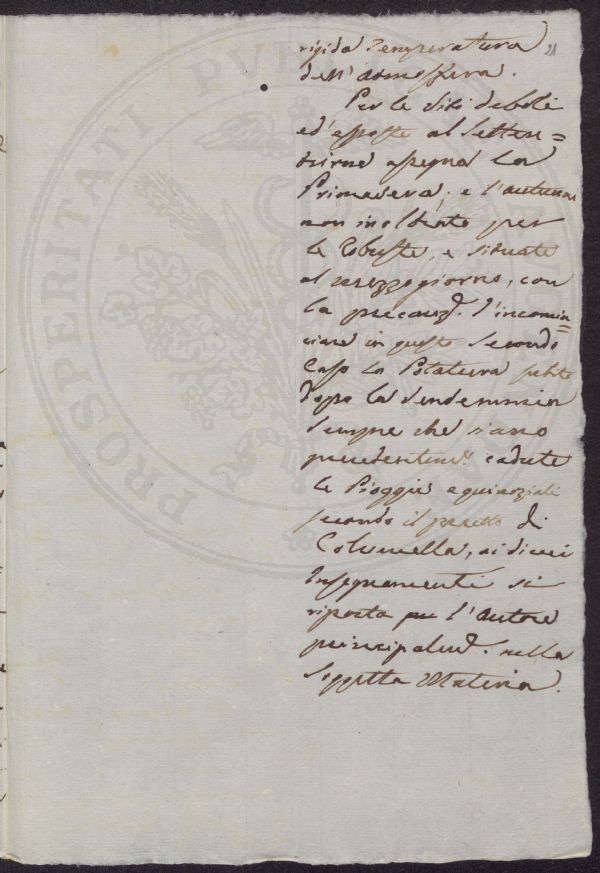 21
rigida Temperatura
dell'atmosfera.
Per le viti deboli
ed' esposte al Setten=
trione assegna la
Primavera; e l'autunno
non inoltrato per
le robuste, e situate
al mezzogiorno, con
la precauz.e d'incomin=
ciare in questo secondo
Caso la Potatura subito
dopo la Vendemmia
sempre che siano
precedentem.e cadute
le Pioggie equinoziali
secondo il precetto di
Columella, ai di cui
Insegnamenti si
riporta l'autore
principalm.e nella
soggetta Materia.
PROSPERITATI PUBLICAE